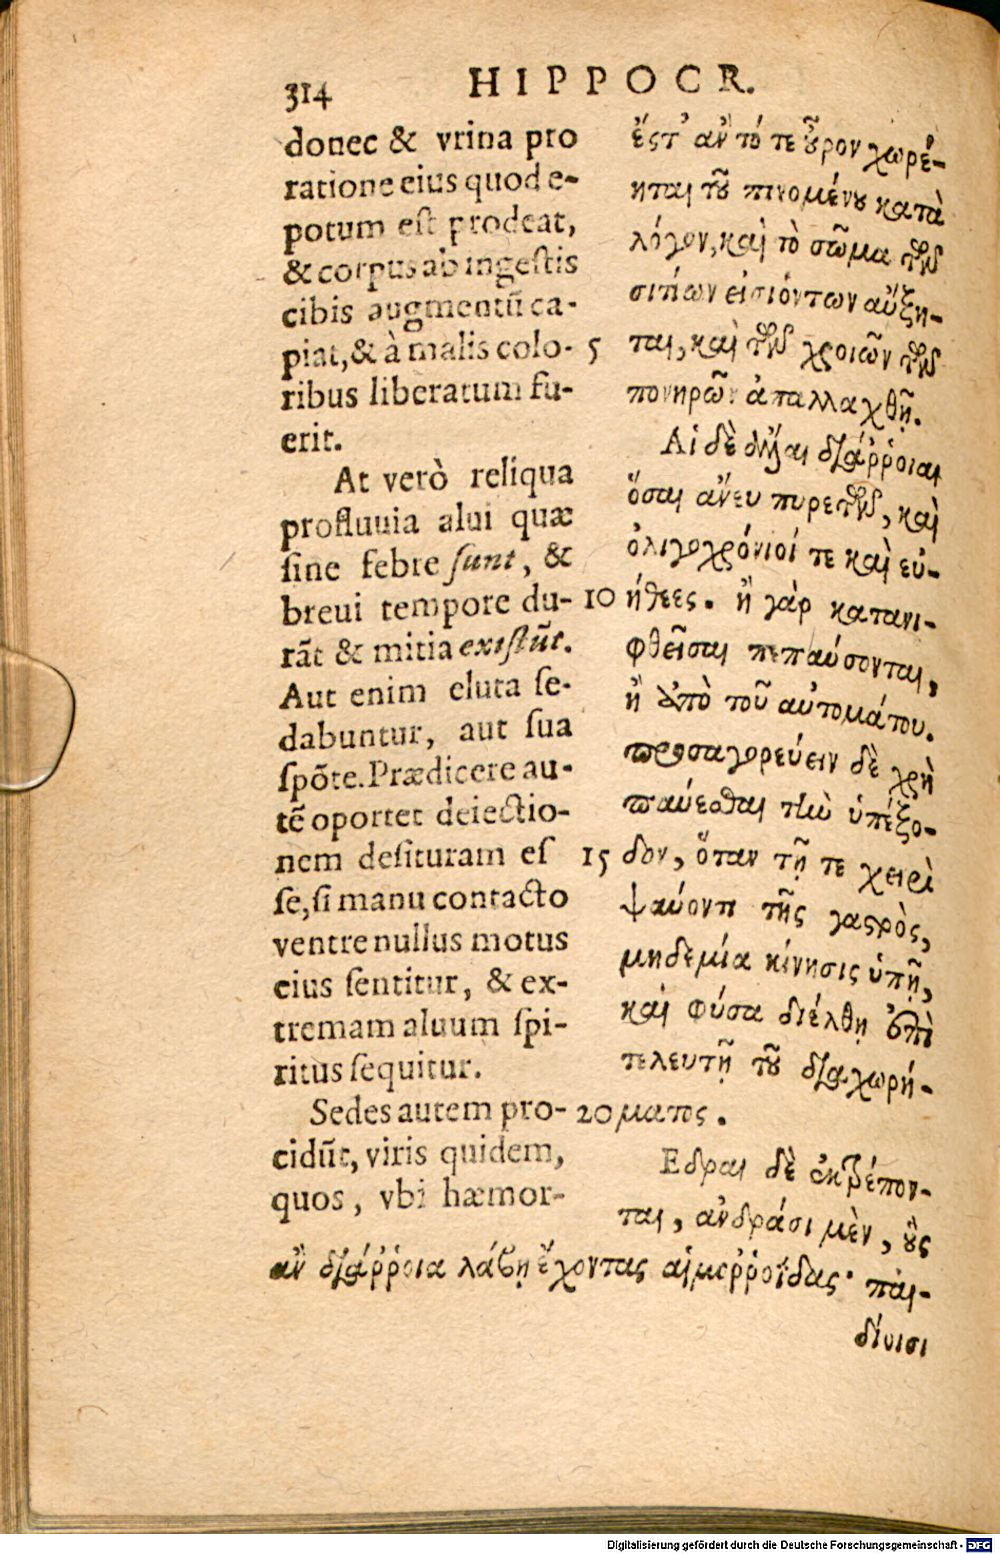 314 HIPPOCR.
donec & vrina pro
ratione eius quod e-
potum est prodeat,
& corpus ab ingestis
cibis augmentũ ca-
piat, & à malis colo-
ribus liberatum fu-
erit.
At verò reliqua
profluuia alui quæ
sine febre sunt, &
breui tempore du-
rãt & mitia existũt.
Aut enim eluta se-
dabuntur, aut sua
spõte. Prædicere au-
tẽ oportet deiectio-
nem desituram es
se, si manu contacto
ventre nullus motus
eius sentitur, & ex-
tremam aluum spi-
ritus sequitur.
Sedes autem pro-
cidũt, viris quidem,
quos, vbi hæmor-
5
10
15
20
ἔςτ' ἂν τό τε οὖρον χωρέ-
ηται τοῦ πινομένου κατὰ
λόγον, καὶ τὸ σῶμα τῶν
σιτίων εἰσιόντων αὔξη-
ται, καὶ τῶν χροιῶν τῶν
πονηρῶν ἀπαλλαχθῇ.
Αἱ δὲ ἄλλαι διάῤῥοιαι
ὅσαι ἄνευ πυρετῶν, καὶ
ὀλιγοχρόνιοί τε καὶ εὐ-
ήθεες. ἢ γὰρ κατανι-
φθεῖσαι πεπαύσονται,
ἢ ἀπὸ τοῦ αὐτομάτου.
προσαγορεύειν δὲ χρὴ
παύεσθαι τὴν ὑπέξο-
δον, ὅταν τῇ τε χειρὶ
ψαύοντι τῆς γαςρὸς,
μηδεμία κίνησις ὑπῇ,
καὶ φύσα διέλθῃ ἐπὶ
τελευτῇ τοῦ διαχωρή-
ματος.
Εδραι δὲ ἐκτρέπον-
ται, ἀνδράσι μὲν, οὓς
ἂν διάῤῥοια λάβῃ ἔχοντας αἱμοῤῥοΐδας· παι-
δίοισι
Digitalisierung gefördert durch die Deutsche Forschungsgemeinschaft - DFG